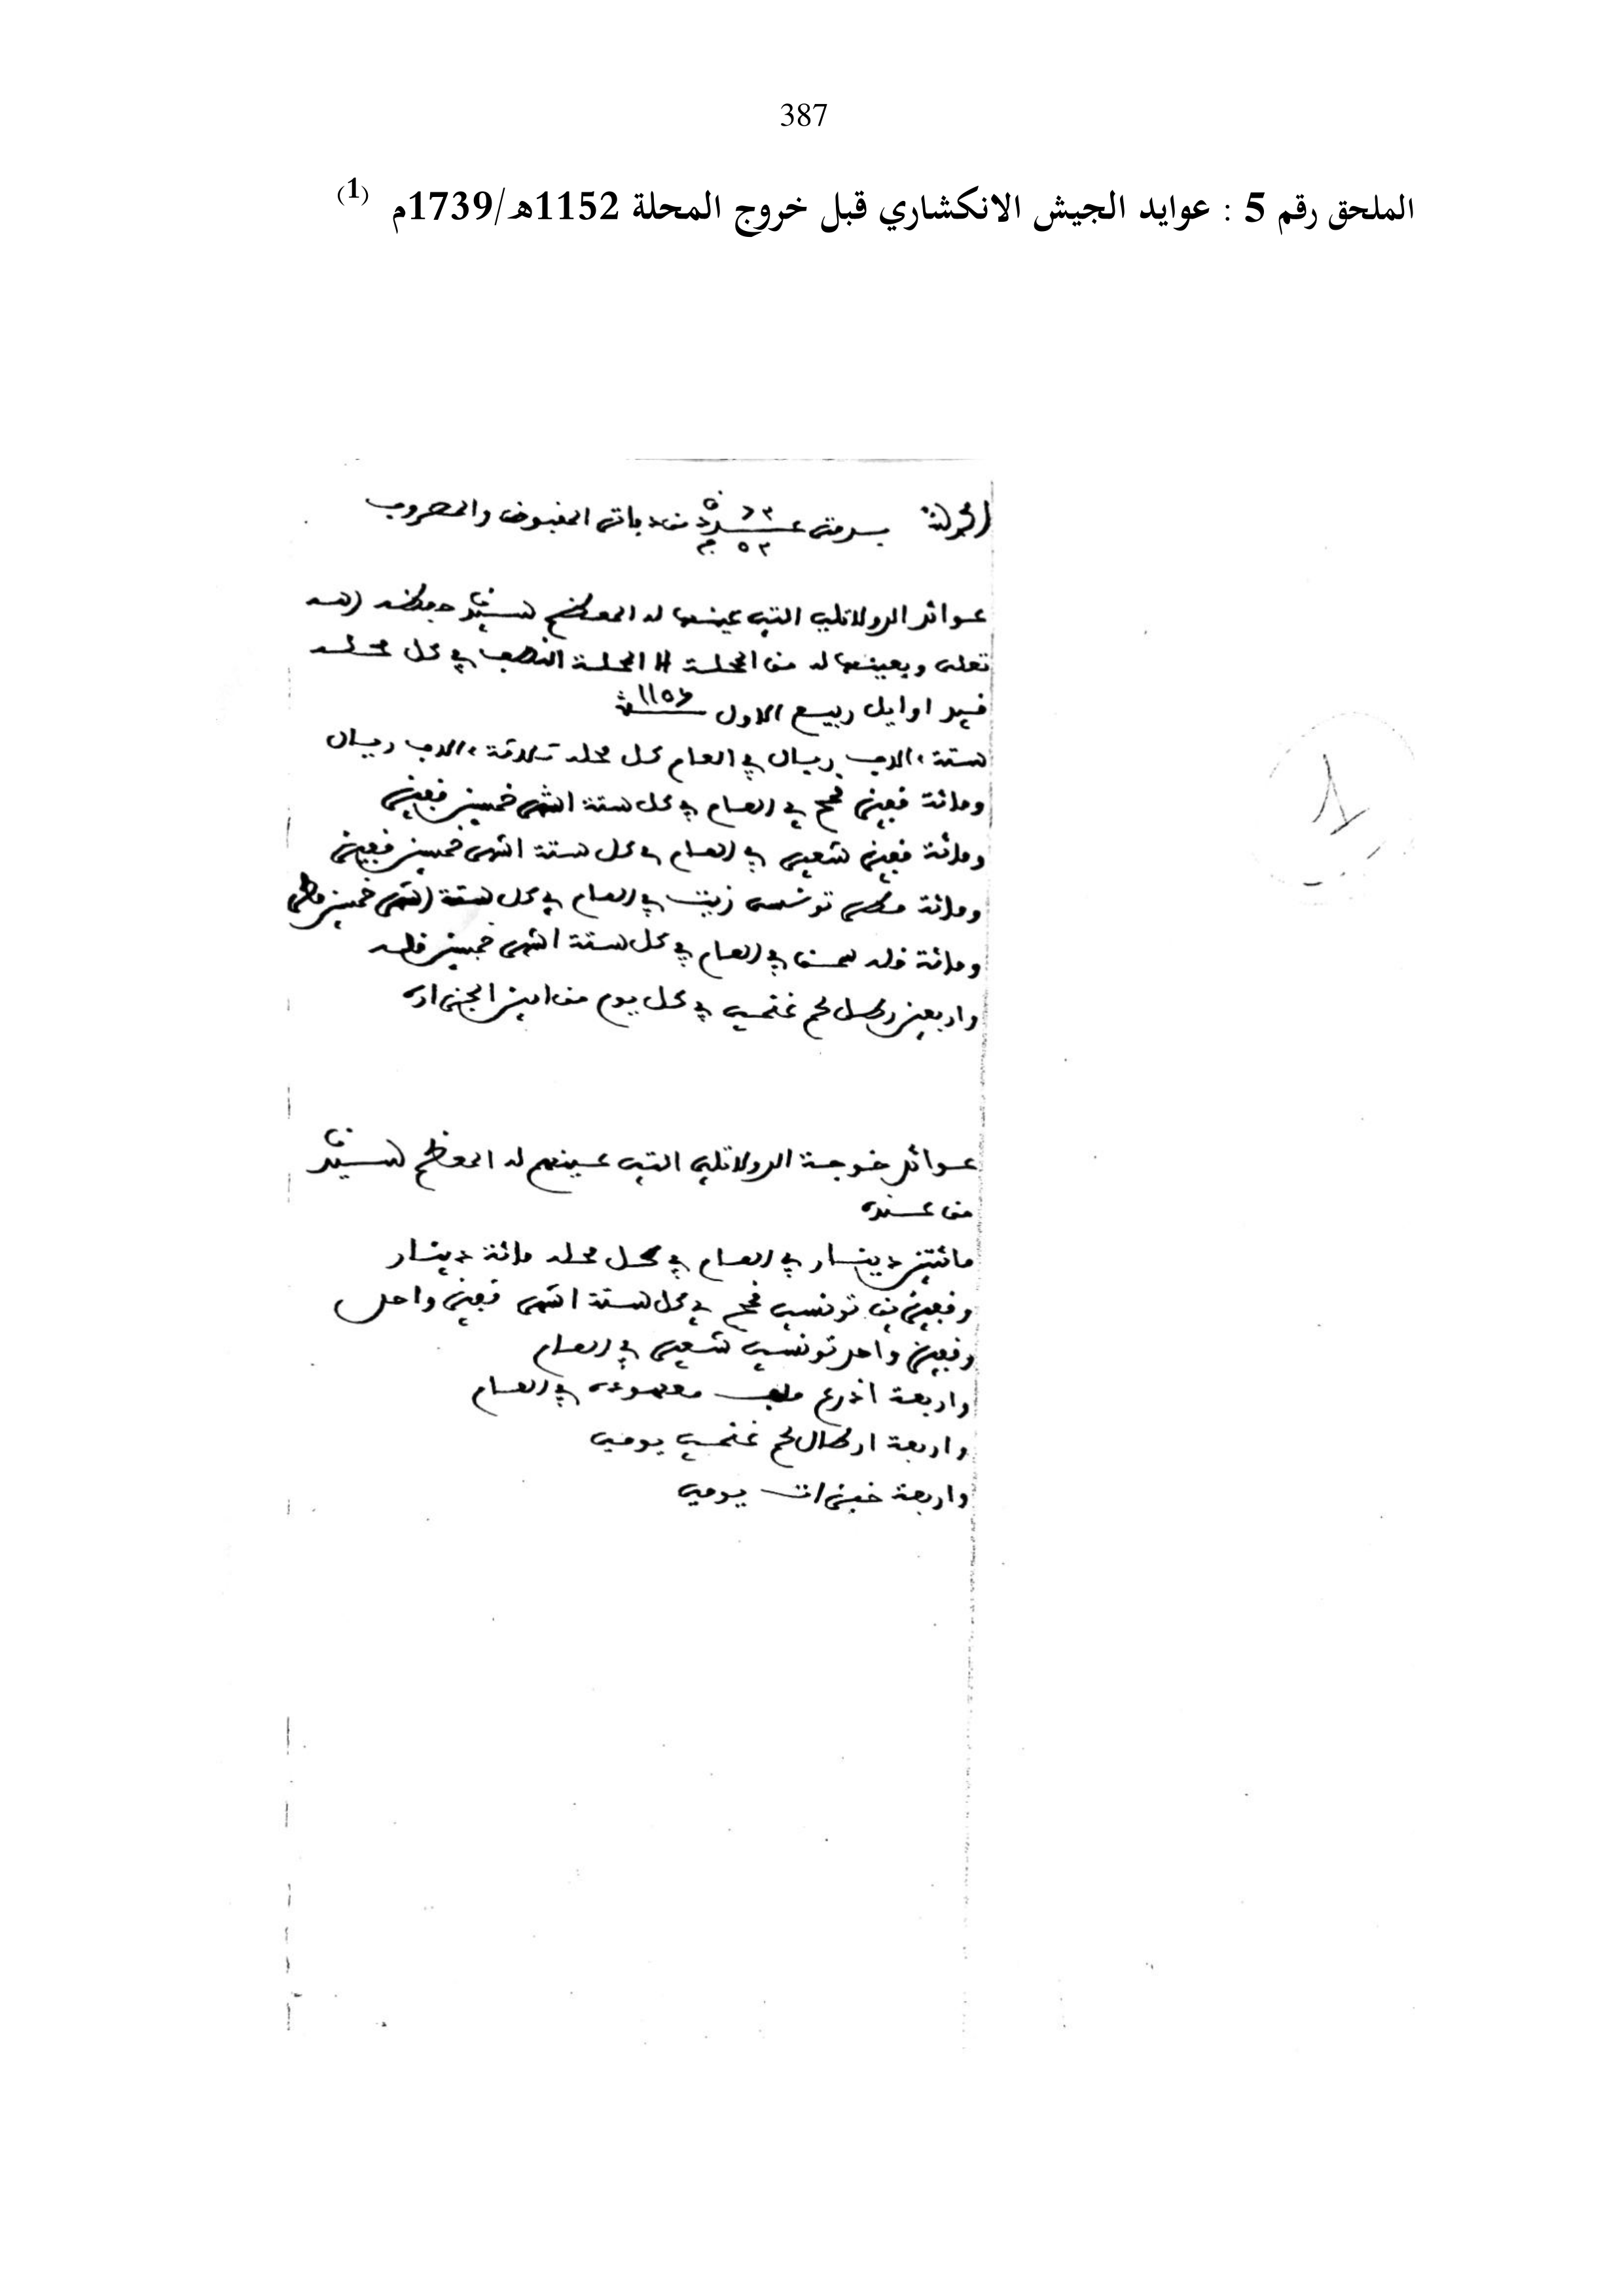 387
الملحق رقم 5 : عوايد الجيش الانكشاري قبل خروج المحلة 1152هـ/1739م (1)
الحمد لله
عوائد الدولاتلي التي عينها له المعظم سيدنا حفظه الله
تعلى ويعينها له من المحلة الى المحلة النصف في كل محله
فيه اوايل ربيع الاول سنة 1152
ستة ءالاف ريال في العام كل محله ثلاثة ءالاف ريال
ومائة قفيز قمح في العام في كل ستة اشهر خمسين قفيز
ومائة قفيز شعير في العام في كل ستة اشهر خمسين قفيز
ومائة مطر تونسي زيت في العام في كل ستة اشهر خمسين مطر
ومائة قله سمن في العام في كل ستة اشهر خمسين قله
واربعين رطل لحم غنمي في كل يوم من امين الجزاره
عوائد خوجة الدولاتلي التي عينهم له المعظم سيدنا
من عنده
مائتين دينار في العام في كل محله مائة دينار
وقفيزين تونسي قمح في كل ستة اشهر قفيز واحد
وقفيز واحد تونسي شعير في العام
واربعة اذرع ملف في العام
واربعة ارطال لحم غنمي يومي
واربعة خبزات يومي